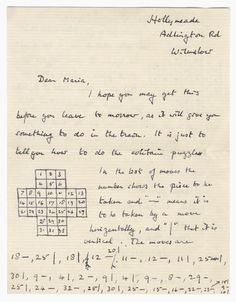 Hollymeade
Adlington Rd
Wilmslow
Dear Maria,
I hope you may get this
before you leave to morrow, as it will give you
something to do in the train. It is just to
tell you how to do the solitaire puzzle.
In the list of moves the
number shows the piece to be
taken and "—" means it is
to be taken by a move
horizontally, and "|" that it is
vertical. The moves are
1 2 3
4 5 6
7 8 9 10 11 12 13
14 15 16 17 18 19 20
21 22 23 24 25 26 27
28 29 30
31 32 33
30|, 9-, 4|, 2-, 9|, 4|, 9-, 8-, 29-,